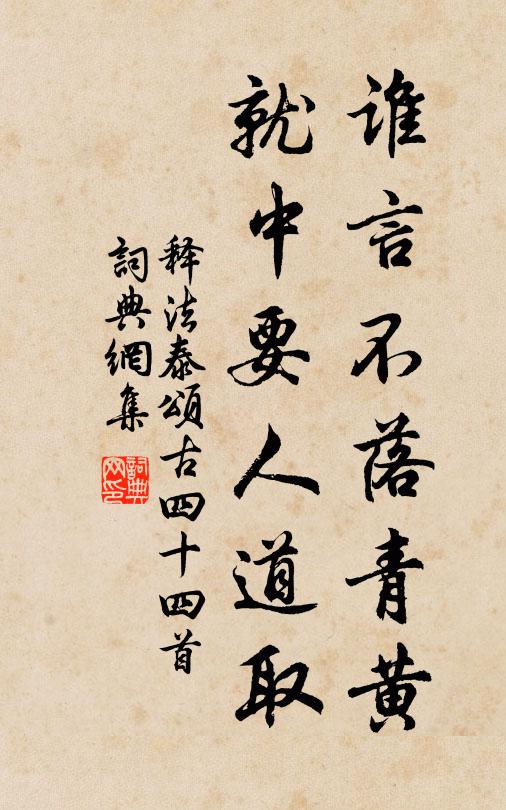 谁言不落青黄
就中要人道取
释法泰颂古四十四首
詞典網集
詞典
网印